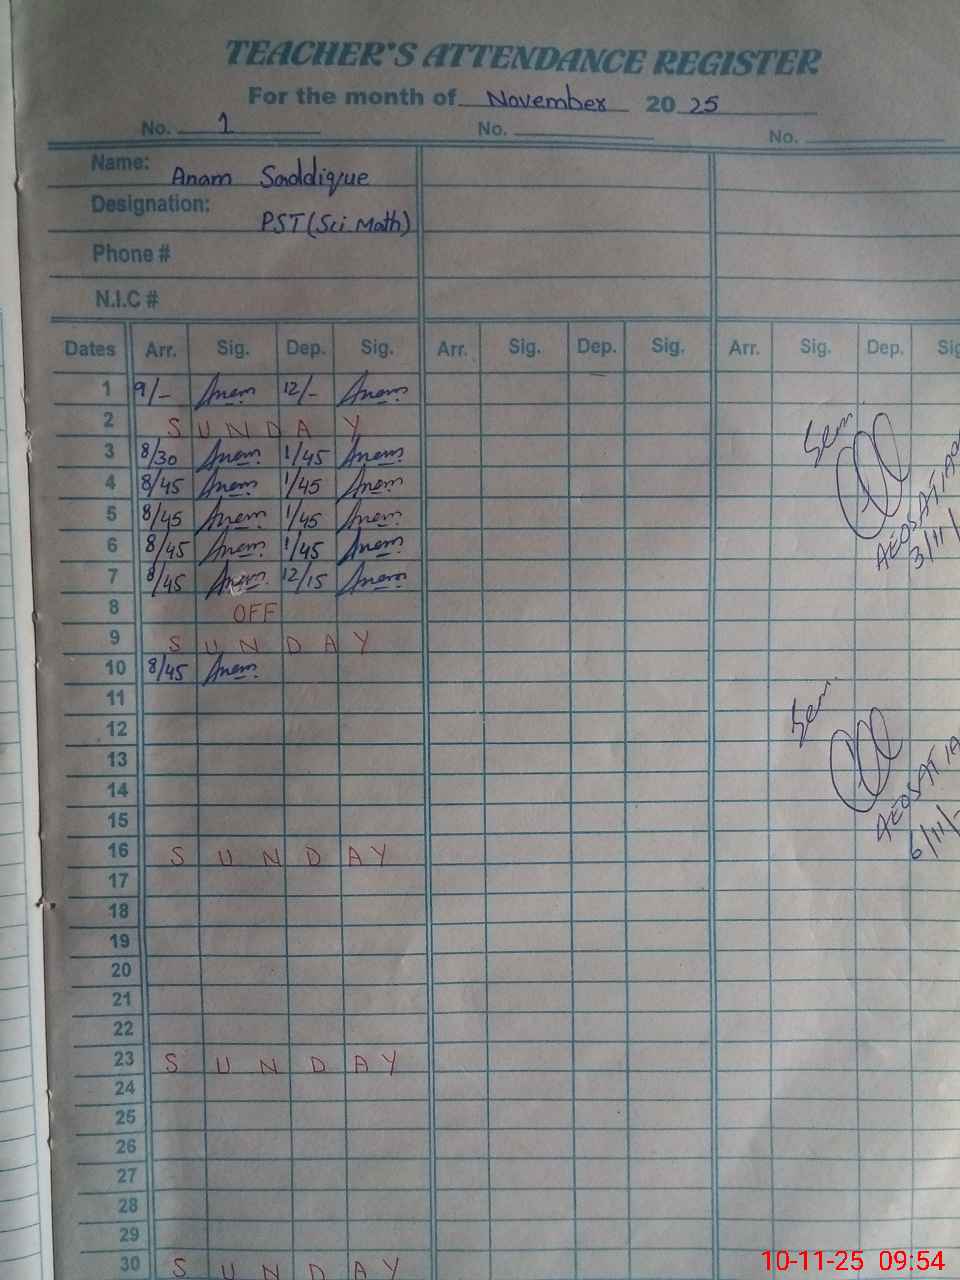 TEACHER'S ATTENDANCE REGISTER
For the month of November 2025
No. 1 No. No.
Name: Anam Saddique
Designation: PST (Sci. Math)
Phone #
N.I.C #
Dates Arr. Sig. Dep. Sig. Arr. Sig. Dep. Sig. Arr. Sig. Dep. Sig
1 9/- Anam 12/- Anam
2 SUNDAY
3 8/30 Anam 1/45 Anam
4 8/45 Anam 1/45 Anam
5 8/45 Anam 1/45 Anam
6 8/45 Anam 1/45 Anam
7 8/45 Anam 12/15 Anam
8 OFF
9 SUNDAY
10 8/45 Anam
11
12
13
14
15
16 SUNDAY
17
18
19
20
21
22
23 SUNDAY
24
25
26
27
28
29
30 SUNDAY
Sem.
3/11/
Sem.
6/11/
10-11-25 09:54